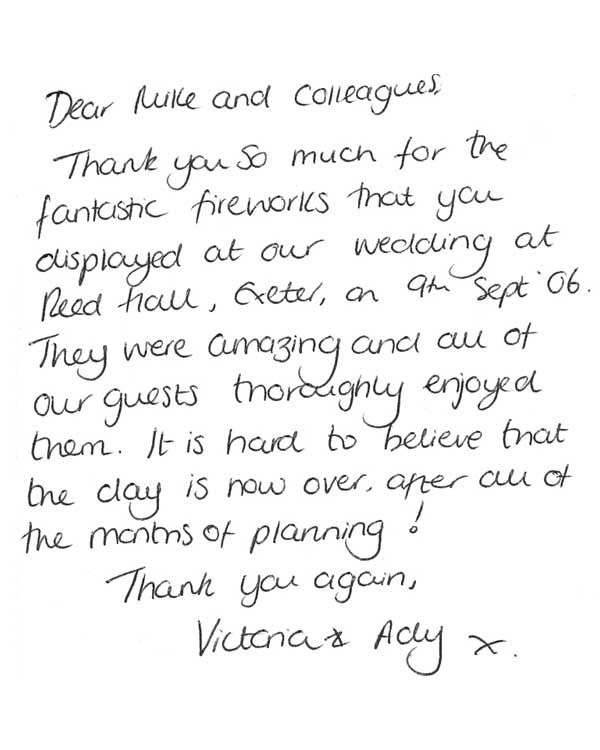 Dear Mike and Colleagues,
Thank you so much for the
fantastic fireworks that you
displayed at our wedding at
Reed Hall, Exeter, on 9th Sept '06.
They were amazing and all of
our guests thoroughly enjoyed
them. It is hard to believe that
the day is now over, after all of
the months of planning!
Thank you again,
Victoria & Ady x.